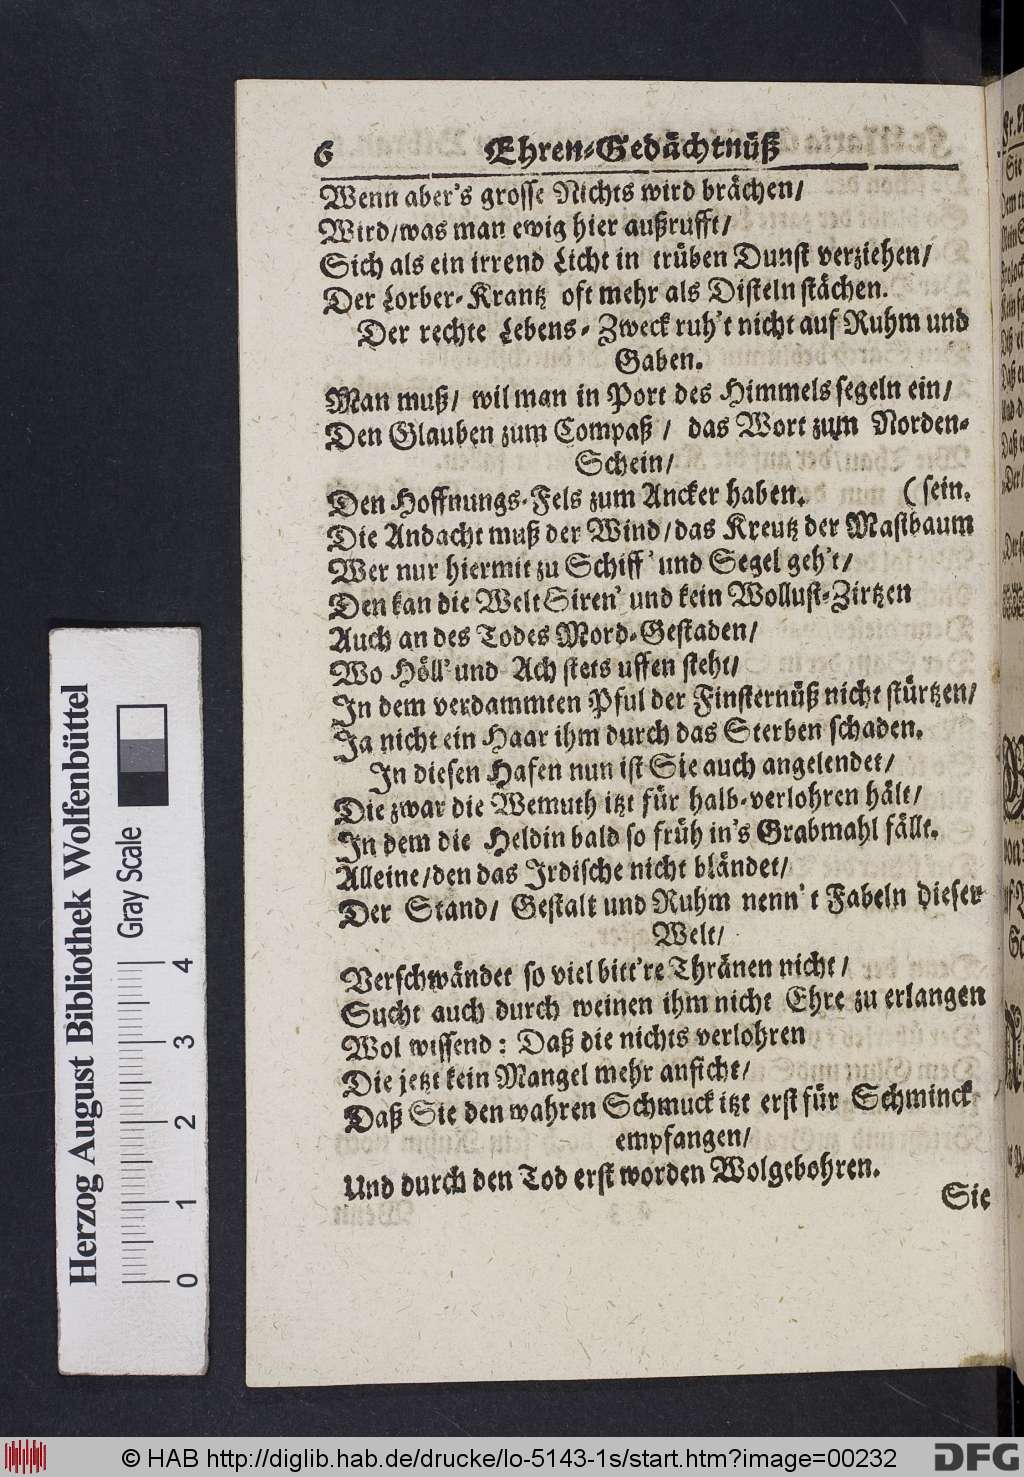 6 Ehren-Gedächtnüß
Wenn aber's grosse Nichts wird brächen/
Wird/was man ewig hier außrufft/
Sich als ein irrend Licht in trüben Dunst verziehen/
Der Lorber-Krantz oft mehr als Disteln stächen.
Der rechte Lebens-Zweck ruh't nicht auf Ruhm und
Gaben.
Man muß/ wil man in Port des Himmels segeln ein/
Den Glauben zum Compaß/ das Wort zum Norden-
Schein/
Den Hoffnungs-Fels zum Ancker haben. (sein.
Die Andacht muß der Wind/das Kreutz der Mastbaum
Wer nur hiermit zu Schiff' und Segel geh't/
Den kan die Welt Siren' und kein Wollust-Zirtzen
Auch an des Todes Mord-Gestaden/
Wo Höll' und Ach stets uffen steht/
In dem verdammten Pful der Finsternüß nicht stürtzen/
Ja nicht ein Haar ihm durch das Sterben schaden.
In diesen Hafen nun ist Sie auch angelendet/
Die zwar die Wemuth itzt für halb-verlohren hält/
In dem die Heldin bald so früh in's Grabmahl fällt.
Alleine/den das Irdische nicht bländet/
Der Stand/ Gestalt und Ruhm nenn't Fabeln dieser
Welt/
Verschwändet so viel bitt're Thränen nicht/
Sucht auch durch weinen ihm nicht Ehre zu erlangen
Wol wissend: Daß die nichts verlohren
Die jetzt kein Mangel mehr anficht/
Daß Sie den wahren Schmuck itzt erst für Schminck
empfangen/
Und durch den Tod erst worden Wolgebohren.
Sie
Herzog August Bibliothek Wolfenbüttel
Gray Scale
0 1 2 3 4
© HAB http://diglib.hab.de/drucke/lo-5143-1s/start.htm?image=00232
DFG